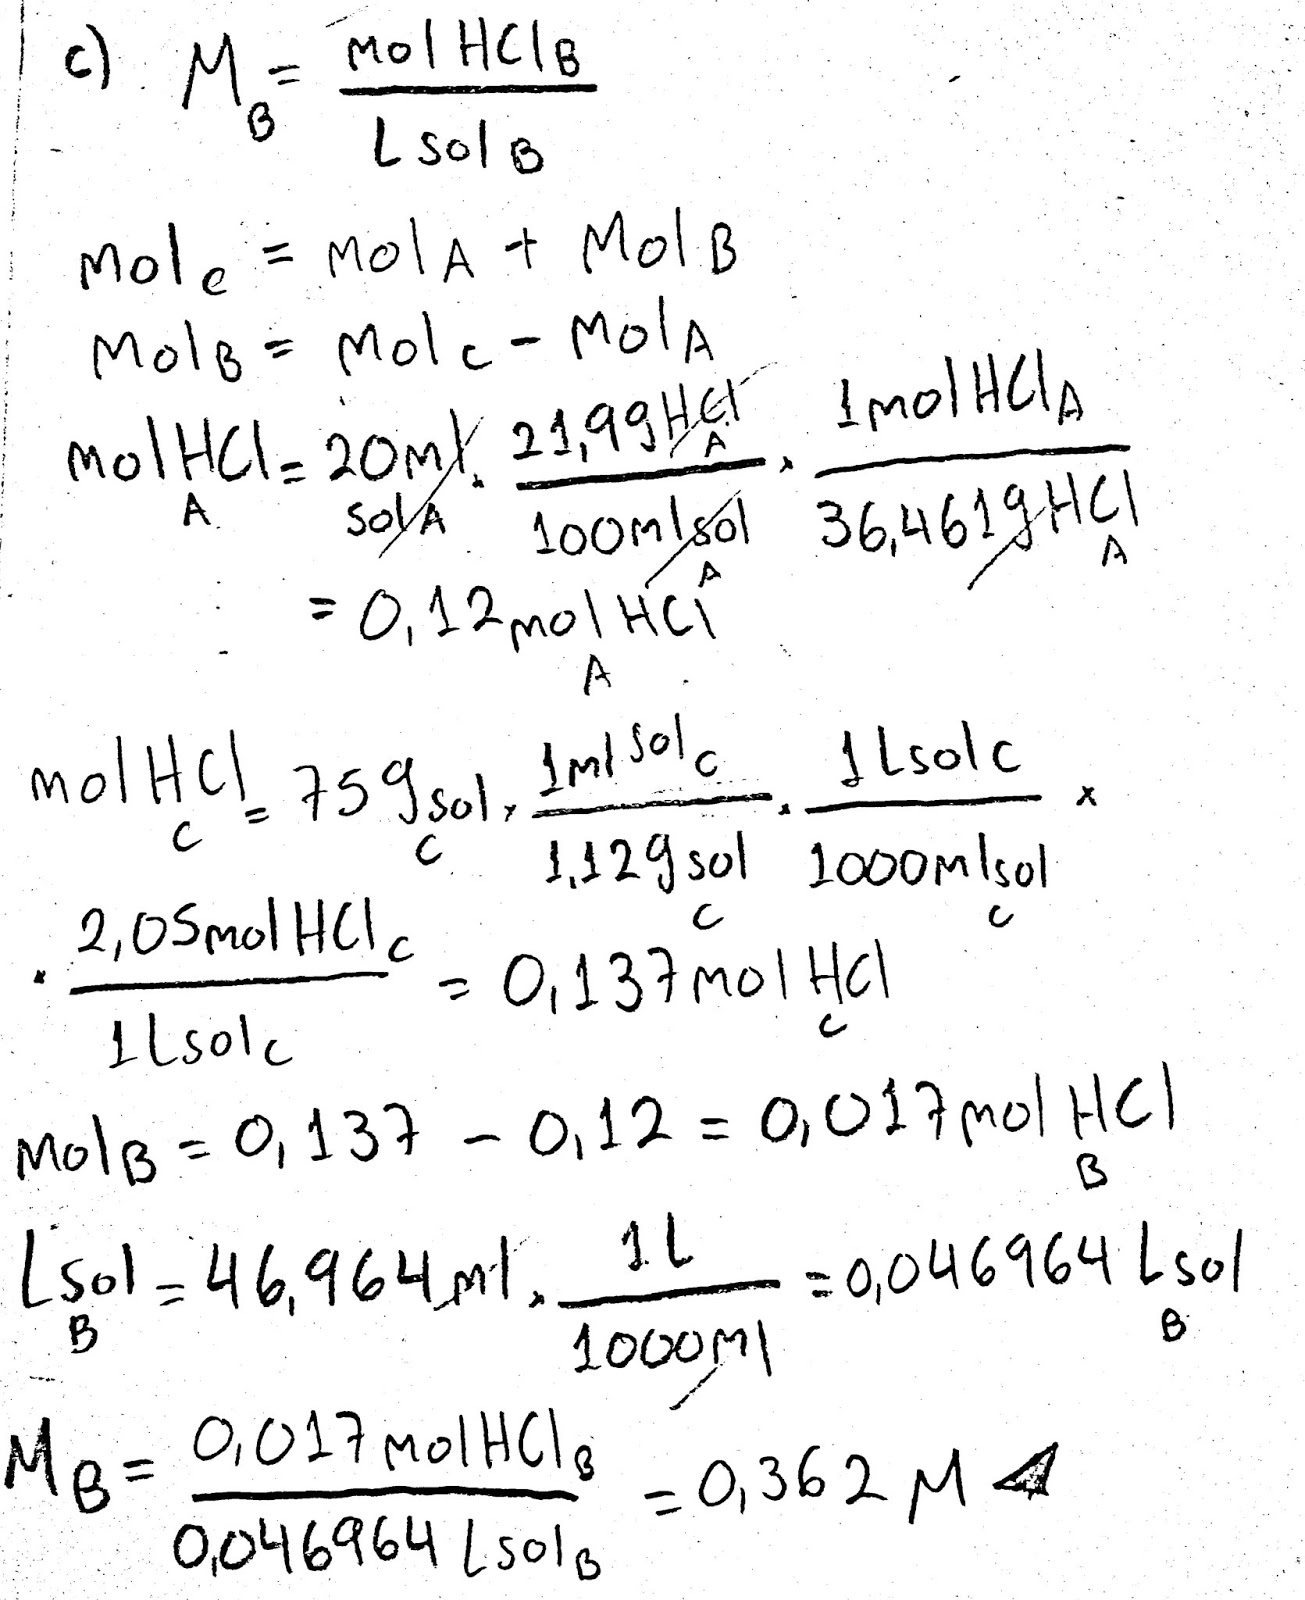 c) M_B = mol HCl_B / L sol_B
mol_c = mol_A + mol_B
mol_B = mol_c - mol_A
mol HCl_A = 20 ml sol_A . 21,99 g HCl_A / 100 ml sol_A x 1 mol HCl_A / 36,461 g HCl_A
= 0,12 mol HCl_A
mol HCl_c = 75 g sol_c x 1 ml sol_c / 1,12 g sol_c x 1 L sol_c / 1000 ml sol_c x
x 2,05 mol HCl_c / 1 L sol_c = 0,137 mol HCl_c
mol_B = 0,137 - 0,12 = 0,017 mol HCl_B
L sol_B = 46,964 ml x 1 L / 1000 ml = 0,046964 L sol_B
M_B = 0,017 mol HCl_B / 0,046964 L sol_B = 0,362 M